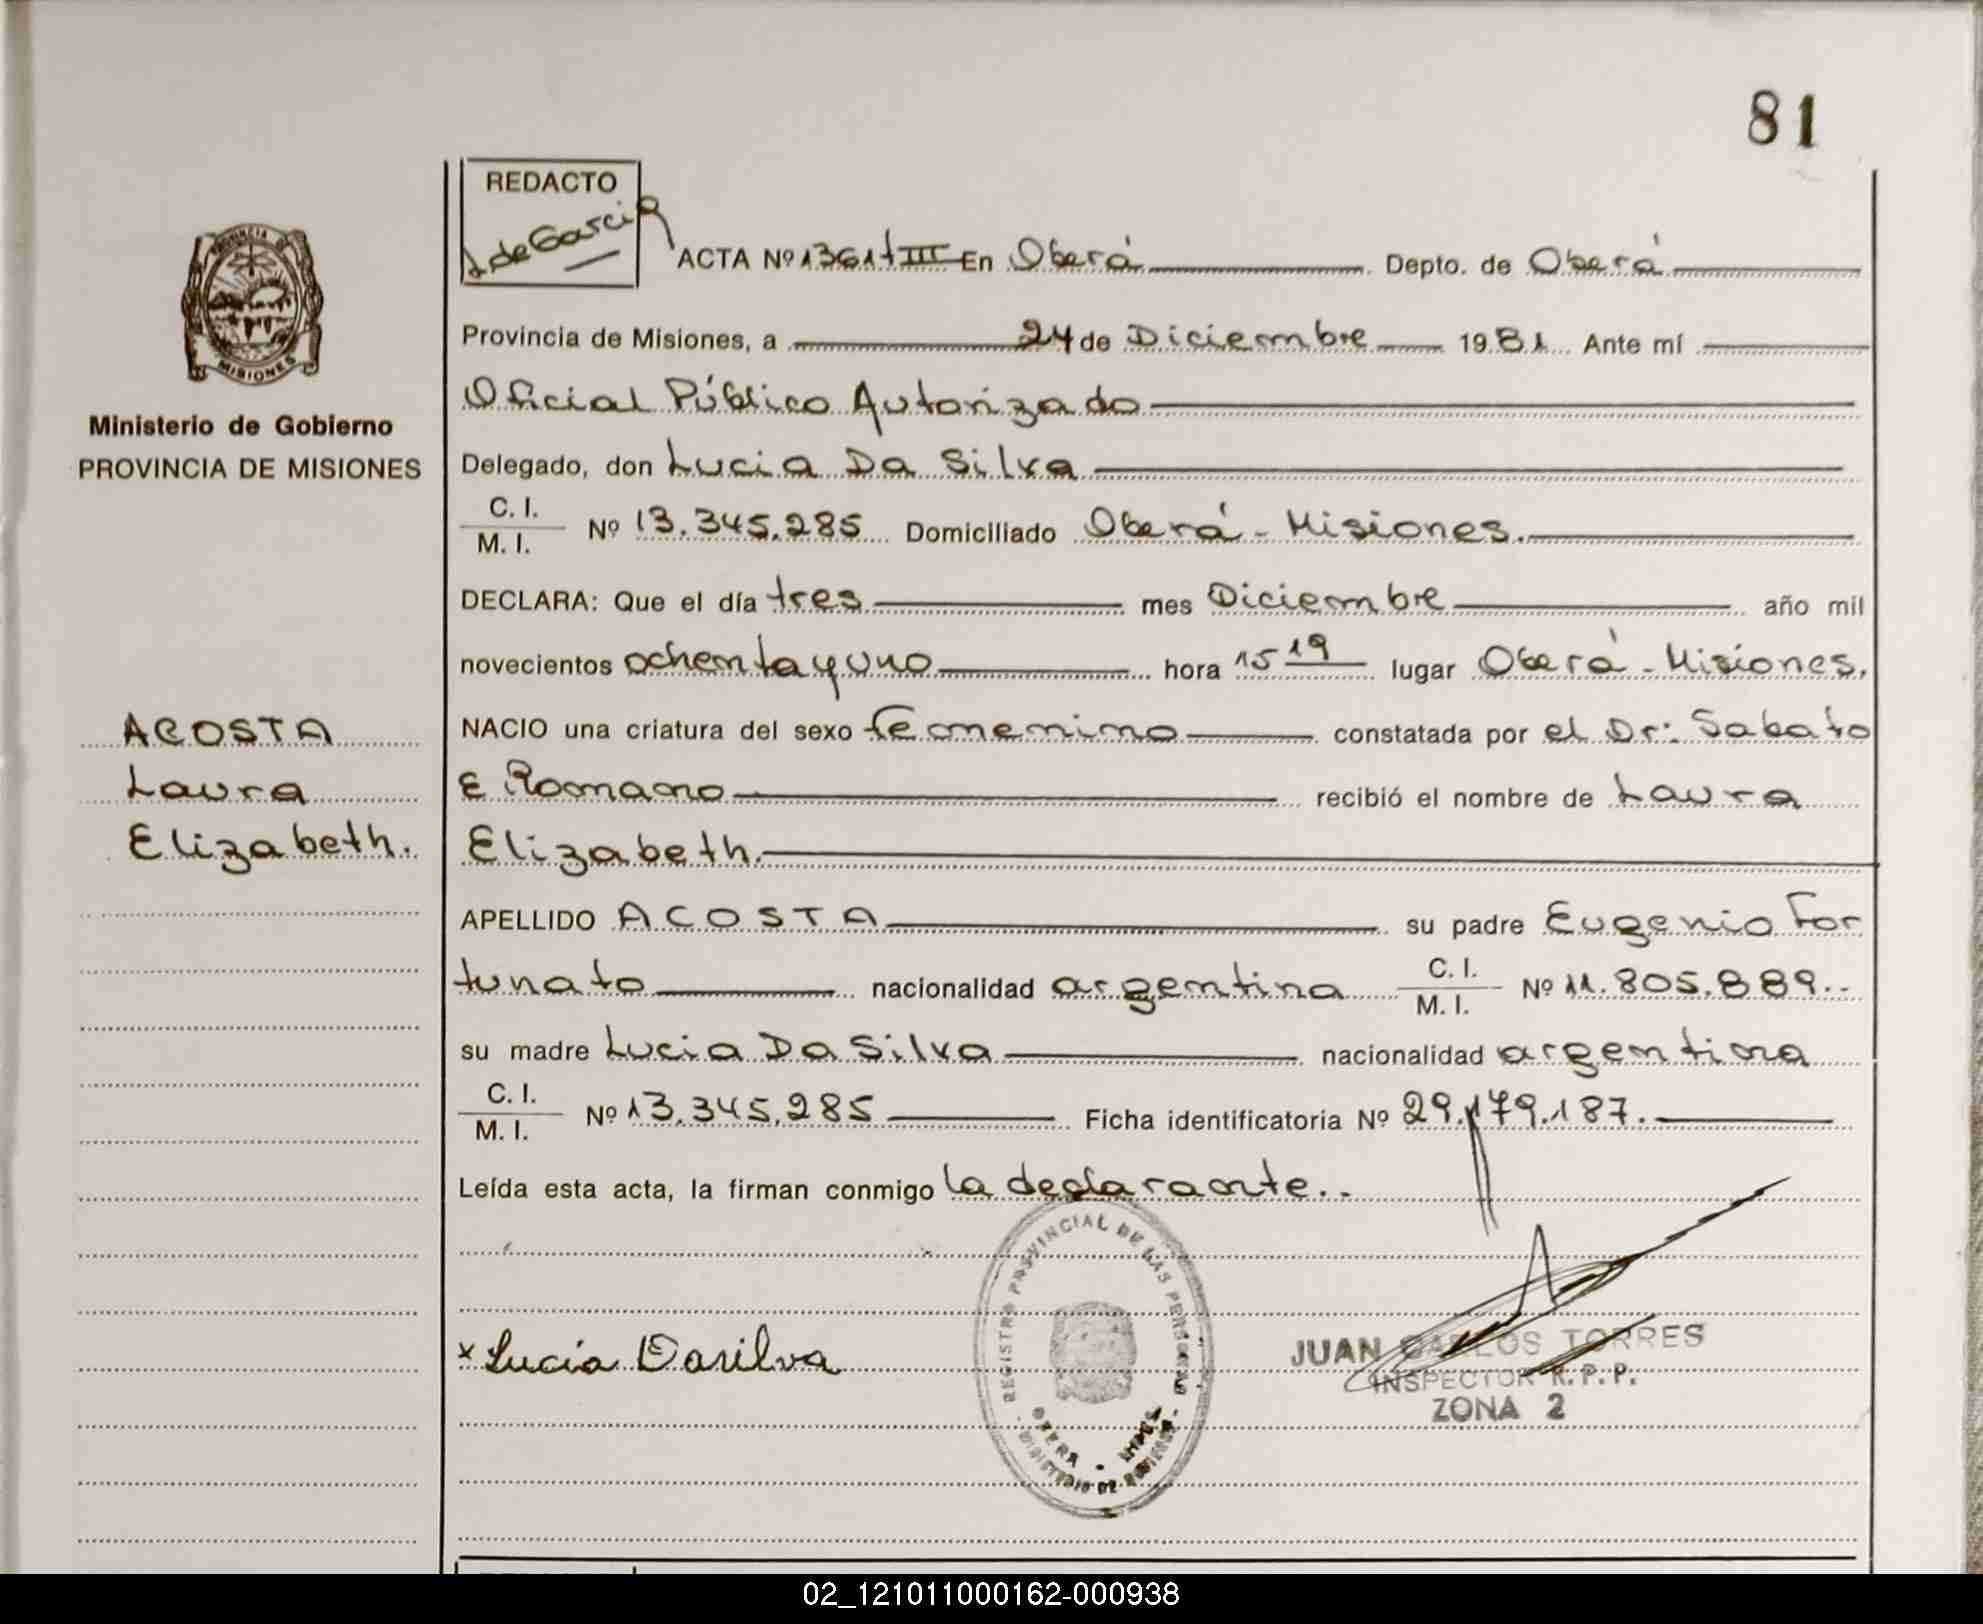 81
REDACTO
L de Garcia
ACTA Nº 1361 t III En Oberá Depto. de Oberá
PROVINCIA DE
MISIONES
Provincia de Misiones, a 24 de Diciembre 1981 Ante mí
Oficial Público Autorizado
Ministerio de Gobierno
PROVINCIA DE MISIONES
Delegado, don Lucia Da Silva
C. I.
M. I. Nº 13.345.285 Domiciliado Oberá - Misiones.
DECLARA: Que el día tres mes Diciembre año mil
novecientos ochenta y uno hora 15 19 lugar Oberá - Misiones.
ACOSTA
Laura
Elizabeth.
NACIO una criatura del sexo femenino constatada por el Dr: Sabato
E Romano recibió el nombre de Laura
Elizabeth.
APELLIDO ACOSTA su padre Eugenio For
tunato nacionalidad argentina C. I. M. I. Nº 11.805.889..
su madre Lucia Da Silva nacionalidad argentina
C. I.
M. I. Nº 13.345.285 Ficha identificatoria Nº 29.179.187.
Leída esta acta, la firman conmigo la declarante..
REGISTRO PROVINCIAL DE LAS PERSONAS
OBERA - MNES
MINISTERIO DE GOBIERNO
x Lucia Dasilva
JUAN CARLOS TORRES
INSPECTOR R.P.P.
ZONA 2
02_121011000162-000938